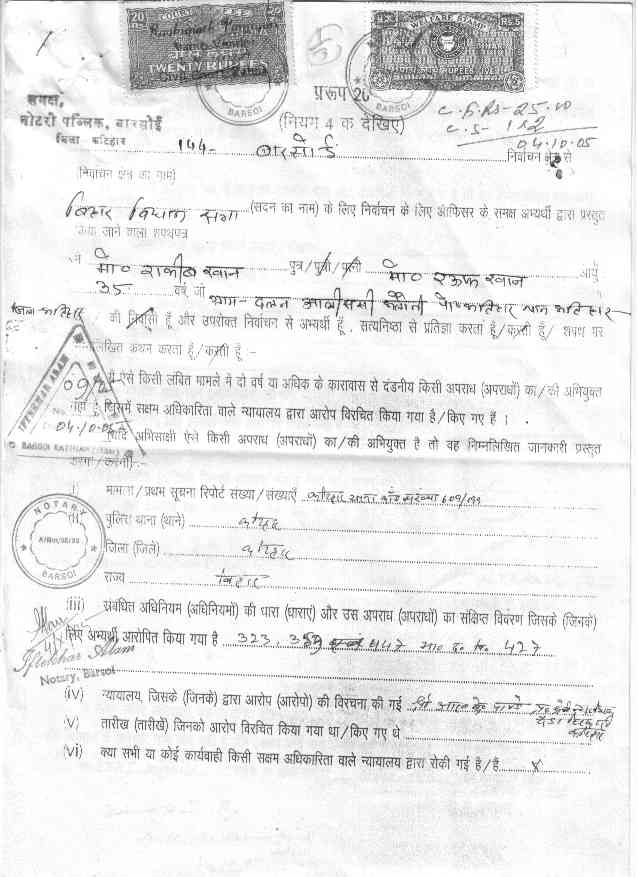 20 COURT FEE
TWENTY RUPEES
WELFARE STAMP
RS.5
BARSOI
BARSOI
प्ररूप 26
(नियम 4 क देखिए)
C.F. Rs- 25.00
C.S- 1x2
04.10.05
समक्ष,
नोटरी पब्लिक, बारसोई
जिला कटिहार
144- बारसोई निर्वाचन क्षेत्र से
(निर्वाचन क्षेत्र का नाम)
बिहार विधान सभा (सदन का नाम) के लिए निर्वाचन के लिए ऑफिसर के समक्ष अभ्यर्थी द्वारा प्रस्तुत
किया जाने वाला शपथपत्र
मैं मो० राकीब खान पुत्र/पुत्री/पत्नी मो० रऊफ खान आयु
35 वर्ष, जो ग्राम- दलन
जिला-कटिहार
की निवासी हूँ और उपरोक्त निर्वाचन से अभ्यर्थी हूँ, सत्यनिष्ठा से प्रतिज्ञा करता हूँ/करती हूँ/ शपथ पर
निम्नलिखित कथन करता हूँ/करती हूँ :-
मैं ऐसे किसी लंबित मामले में दो वर्ष या अधिक के कारावास से दंडनीय किसी अपराध (अपराधों) का/की अभियुक्त
नहीं हूँ जिसमें सक्षम अधिकारिता वाले न्यायालय द्वारा आरोप विरचित किया गया है/किए गए हैं ।
04.10.05
BARSOI KATIHAR
(यदि अभिसाक्षी ऐसे किसी अपराध (अपराधों) का/की अभियुक्त है तो वह निम्नलिखित जानकारी प्रस्तुत
करेगा/करेगी):-
i) मामला/प्रथम सूचना रिपोर्ट संख्या/संख्याएँ 609/199
NOTARY
BARSOI
(ii) पुलिस थाना (थाने) कटिहार
जिला (जिले) कटिहार
राज्य बिहार
(iii) संबंधित अधिनियम (अधिनियमों) की धारा (धाराएं) और उस अपराध (अपराधों) का संक्षिप्त विवरण जिसके (जिनके)
लिए अभ्यर्थी आरोपित किया गया है 323, 447 भा० द० वि० 427
Iftekhar Alam
Notary, Barsoi
(iv) न्यायालय, जिसके (जिनके) द्वारा आरोप (आरोपो) की विरचना की गई
(v) तारीख (तारीखें) जिनको आरोप विरचित किया गया था/किए गए थे
(vi) क्या सभी या कोई कार्यवाही किसी सक्षम अधिकारिता वाले न्यायालय द्वारा रोकी गई है/हैं X